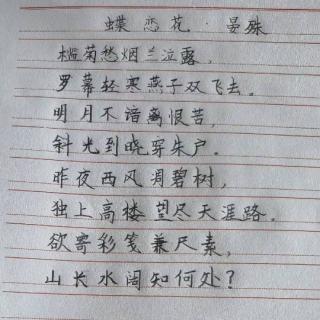 蝶恋花·晏殊
槛菊愁烟兰泣露，
罗幕轻寒燕子双飞去。
明月不谙离恨苦，
斜光到晓穿朱户。
昨夜西风凋碧树，
独上高楼望尽天涯路。
欲寄彩笺兼尺素，
山长水阔知何处？